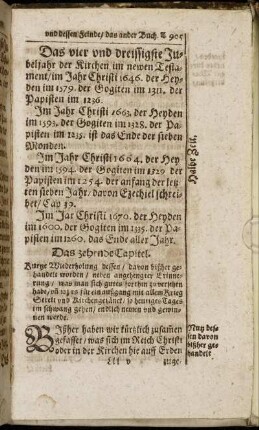 und dessen Feinde/ das ander Buch. 905
Das vier und dreissigste Ju-
beljahr der Kirchen im newen Testa-
ment/ im Jahr Christi 1646. der Hey-
den im 1579. der Gogiten im 1311. der
Papisten im 1236.
Im Jahr Christi 1663. der Heyden
im 1593. der Gogiten im 1328. der Pa-
pisten im 1235. ist das Ende der sieben
Monden.
Im Jahr Christi 1664. der Hey
den im 1594. der Gogiten im 1329 der
Papisten im 1254. der anfang der letz
ten sieben Jahr/ davon Ezechiel schrei-
bet/ Cap 39.
Im Jar Christi 1670. der Heyden
im 1600. der Gogiten im 1335. der Pa-
pisten im 1260. das Ende aller Jahr.
Das zehende Capitel.
Kurtze Wiederholung dessen/ davon bißher ge-
handelt worden/ neben angehengter Erinne-
rung/ was man sich guten forthin zu versehen
habe/ für ein außgang mit allem Krieg
Streit und Kirchengezänck/ so heuniges Tages
im schwang gehen/ endlich nemen und gewin-
nen werde.
Bißher haben wir kürtzlich zusamen
gefasset/ was sich im Reich Christi
oder in der Kirchen hie auff Erden
Lll v zuge-
Halbe Zeit.
davon
bißher ge-
handelt